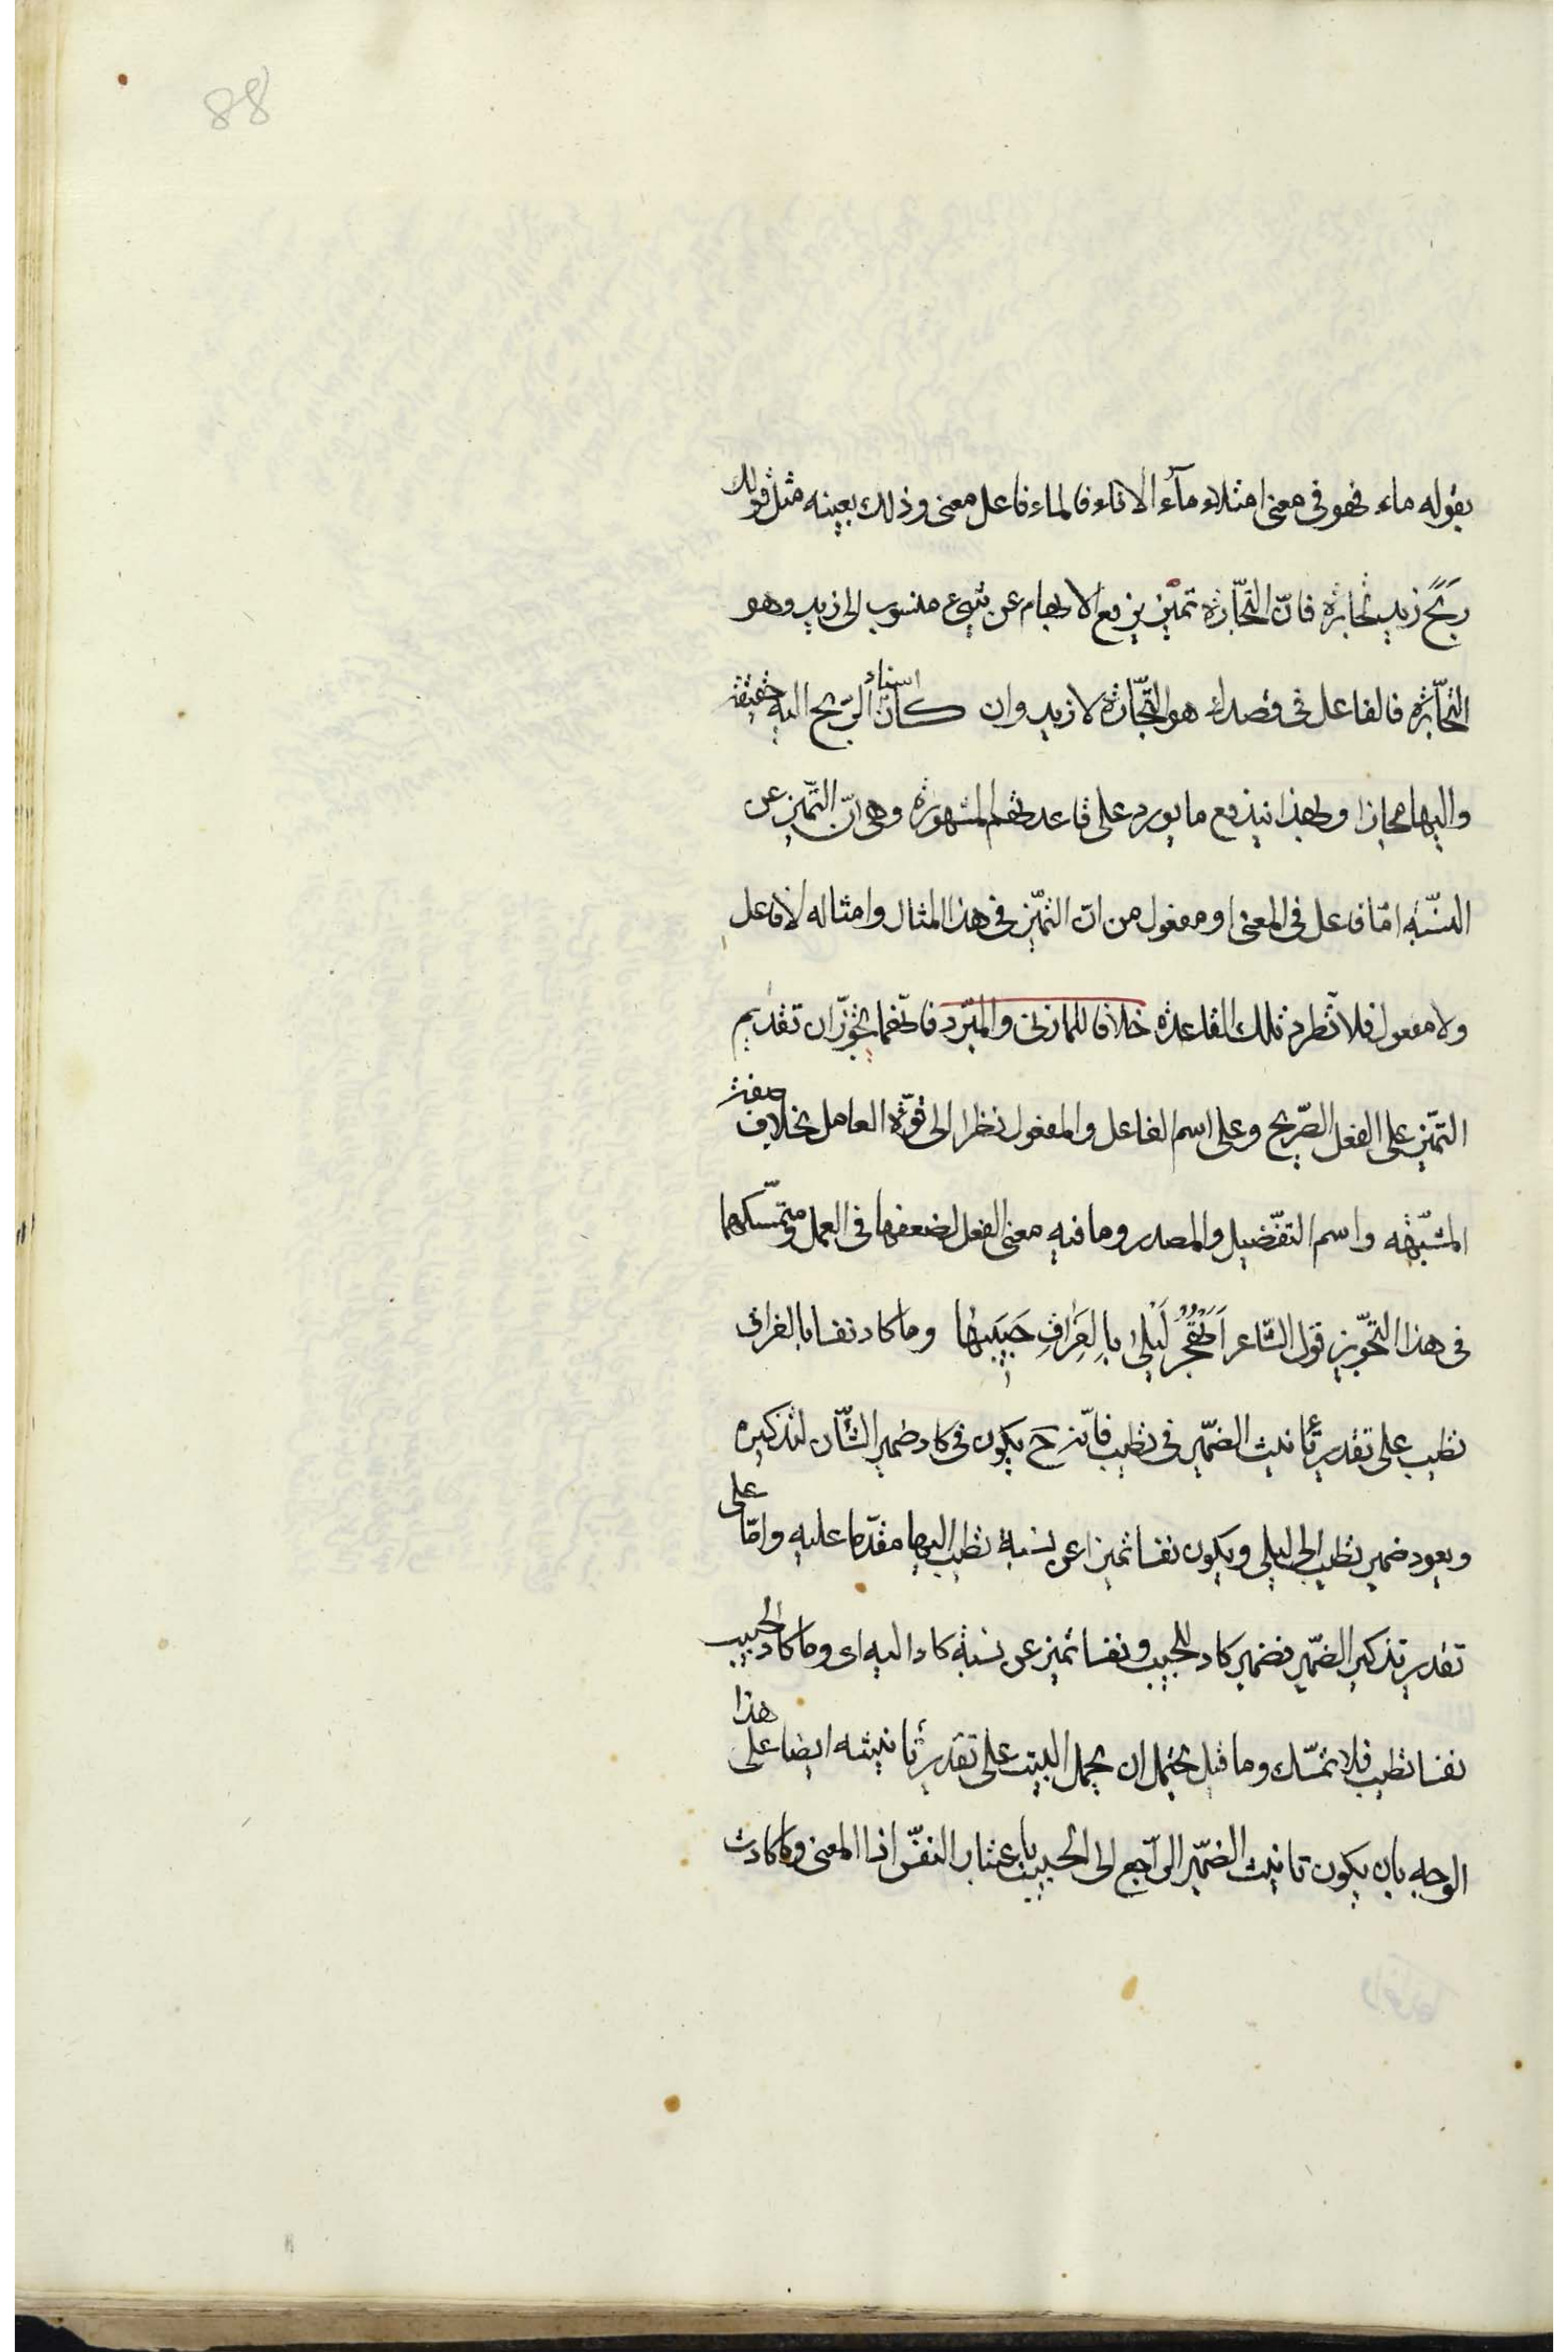 88
بقوله ماء فهو فى معنى امتلاء ماء الاناء فالماء فاعل معنى وذلك بعينه مثل قولك
ربح زيد تجارة فانّ التّجارة تميّز يرفع الابهام عن شئ منسوب الى زيد وهو
التّجارة فالفاعل فى قصدك هو التّجارة لا زيد وان كان اسناد الرّبح اليه حقيقة
واليها مجازا وبهذا يندفع ما يورد على قاعدتهم المشهورة وهى انّ التّميز عن
النسّبة امّا فاعل فى المعنى او مفعول من انّ التميّز فى هذا المثال وامثاله لا فاعل
ولا مفعول فلا تطرد تلك القاعدة خلافا للمازنى والمبّرد فانّهما يجوّزان تقديم
التمّيز على الفعل الصّريح وعلى اسم الفاعل والمفعول نظرا الى قوّة العامل بخلاف صفة
المشبّهة واسم التفّضيل والمصدر وما فيه معنى الفعل لضعفها فى العمل ومتمسّكهما
فى هذا التجّويز قول الشّاعر اَتَهْجُرُ لَيْلى بِالِفَراقِ حَبيبَها وما كاد نفسا بالفراق
تطيب على تقدير تأنيث الضمّير فى تطيب فانّه ح يكون فى كاد ضمير الشّأن لتذكيره
ويعود ضمير تطيب الى ليلى ويكون نفسا تميزا عن نسبة تطيب اليها مقدّما عليه وامّا على
تقدير تذكير الضمّير فضمير كاد للحبيب ونفسا تميز عن نسبة كاد اليه اى وما كاد الحبيب
نفسا تطيب فلا تمسّك وما قيل يحتمل ان يحمل البيت على تقدير تأنيثه ايضا على هذا
الوجه بان يكون تانيث الضمّير الرّاجع الى الحبيب باعتبار النفّس اذا المعنى وما كادت